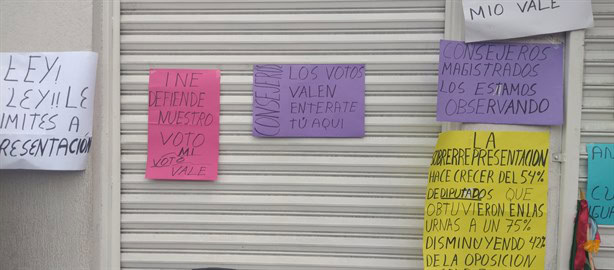 LEY!
LEY!! LE
IMITES A
PRESENTACIÓN
INE
DEFIENDE
NUESTRO
VOTO
MI
VOTO
VALE
CONSEJERO
LOS VOTOS
VALEN
ENTERATE
TÚ AQUI
MIO VALE
CONSEJEROS
MAGISTRADOS
LOS ESTAMOS
OBSERVANDO
LA
SOBRERREPRESENTACION
HACE CRECER DEL 54%
DE DIPUTADOS QUE
OBTUVIERON EN LAS
URNAS A UN 75%
DISMINUYENDO 42%
DE LA OPOSICION
AN
CU